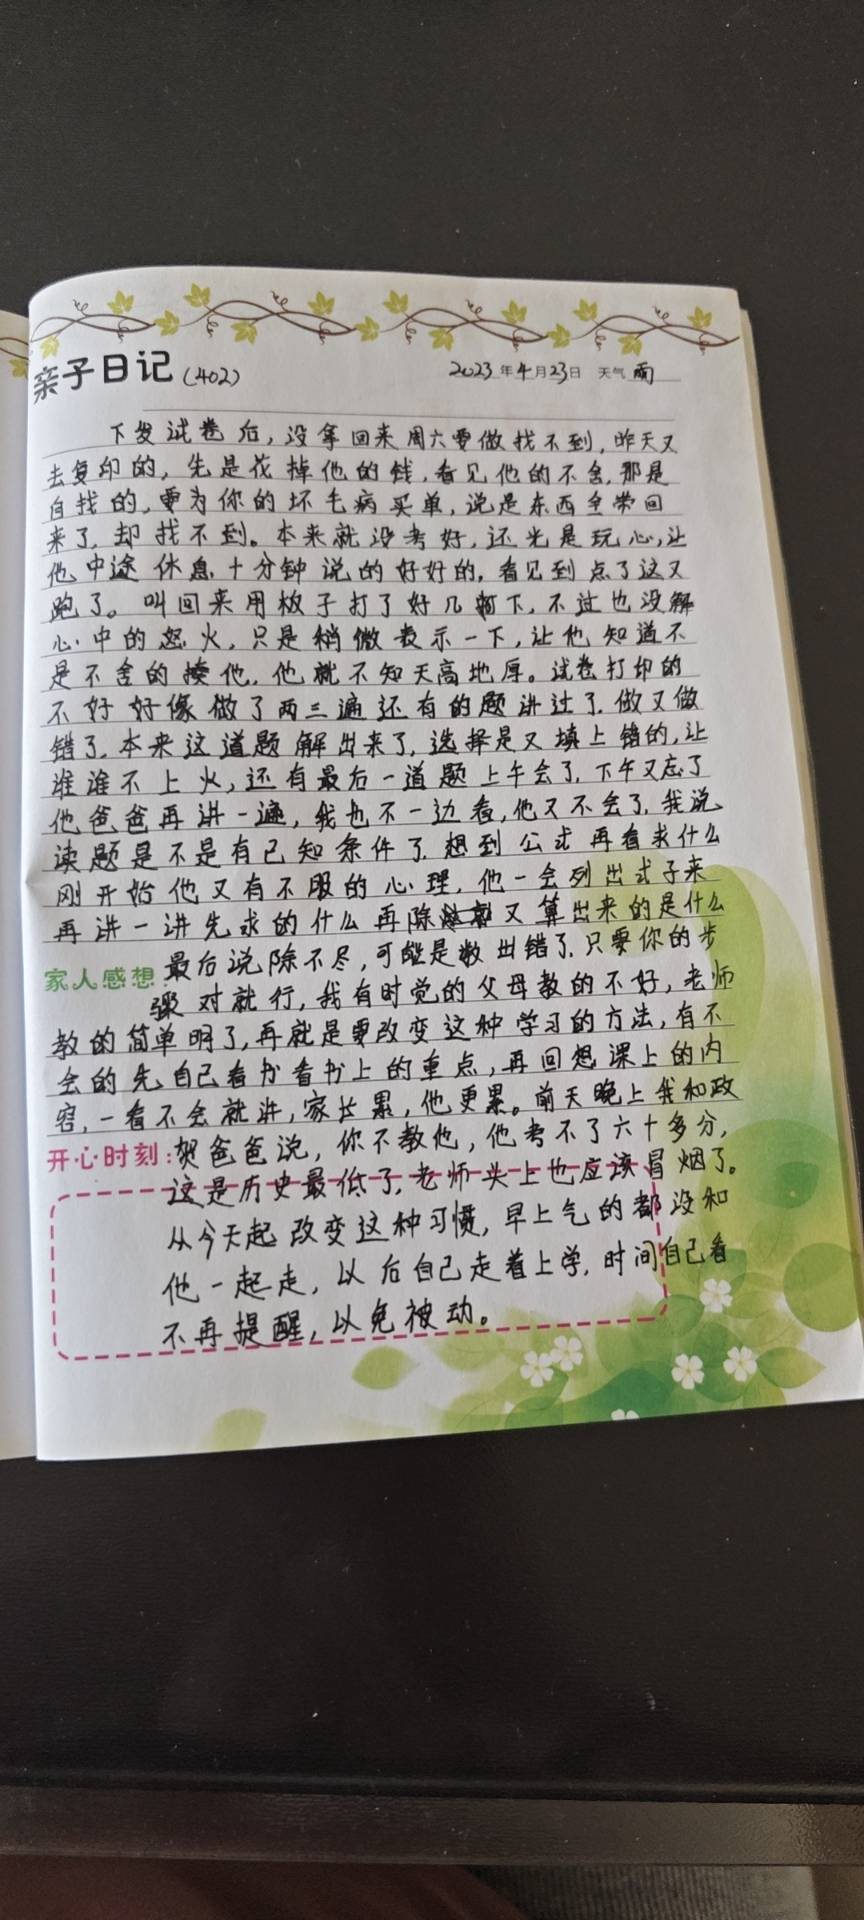 亲子日记(402) 2023年4月23日 天气 雨
下发试卷后,没拿回来周六要做找不到,昨天又
去复印的,先是花掉他的钱,看见他的不舍,那是
自找的,要为你的坏毛病买单,说是东西全带回
来了,却找不到。本来就没考好,还光是玩心,让
他中途休息十分钟说的好好的,看见到点了这又
跑了。叫回来用板子打了好几下,不过也没解
心中的怒火,只是稍微表示一下,让他知道不
是不舍的揍他,他就不知天高地厚。试卷打印的
不好好像做了两三遍还有的题讲过了,做又做
错了,本来这道题解出来了,选择是又填上错的,让
谁谁不上火,还有最后一道题上午会了,下午又忘了
他爸爸再讲一遍,我也不一边看,他又不会了,我说
读题是不是有已知条件了,想到公式再看求什么
刚开始他又有不服的心理,他一会列出式子来
再讲一讲先求的什么再除 又算出来的是什么
家人感想:最后说除不尽,可能是数出错了,只要你的步
骤对就行,我有时觉的父母教的不好,老师
教的简单明了,再就是要改变这种学习的方法,有不
会的先自己看书看书上的重点,再回想课上的内
容,一看不会就讲,家长累,他更累。前天晚上我和政
开心时刻:贺爸爸说,你不教他,他考不了六十多分,
这是历史最低了,老师头上也应该冒烟了。
从今天起改变这种习惯,早上气的都没和
他一起走,以后自己走着上学,时间自己看
不再提醒,以免被动。